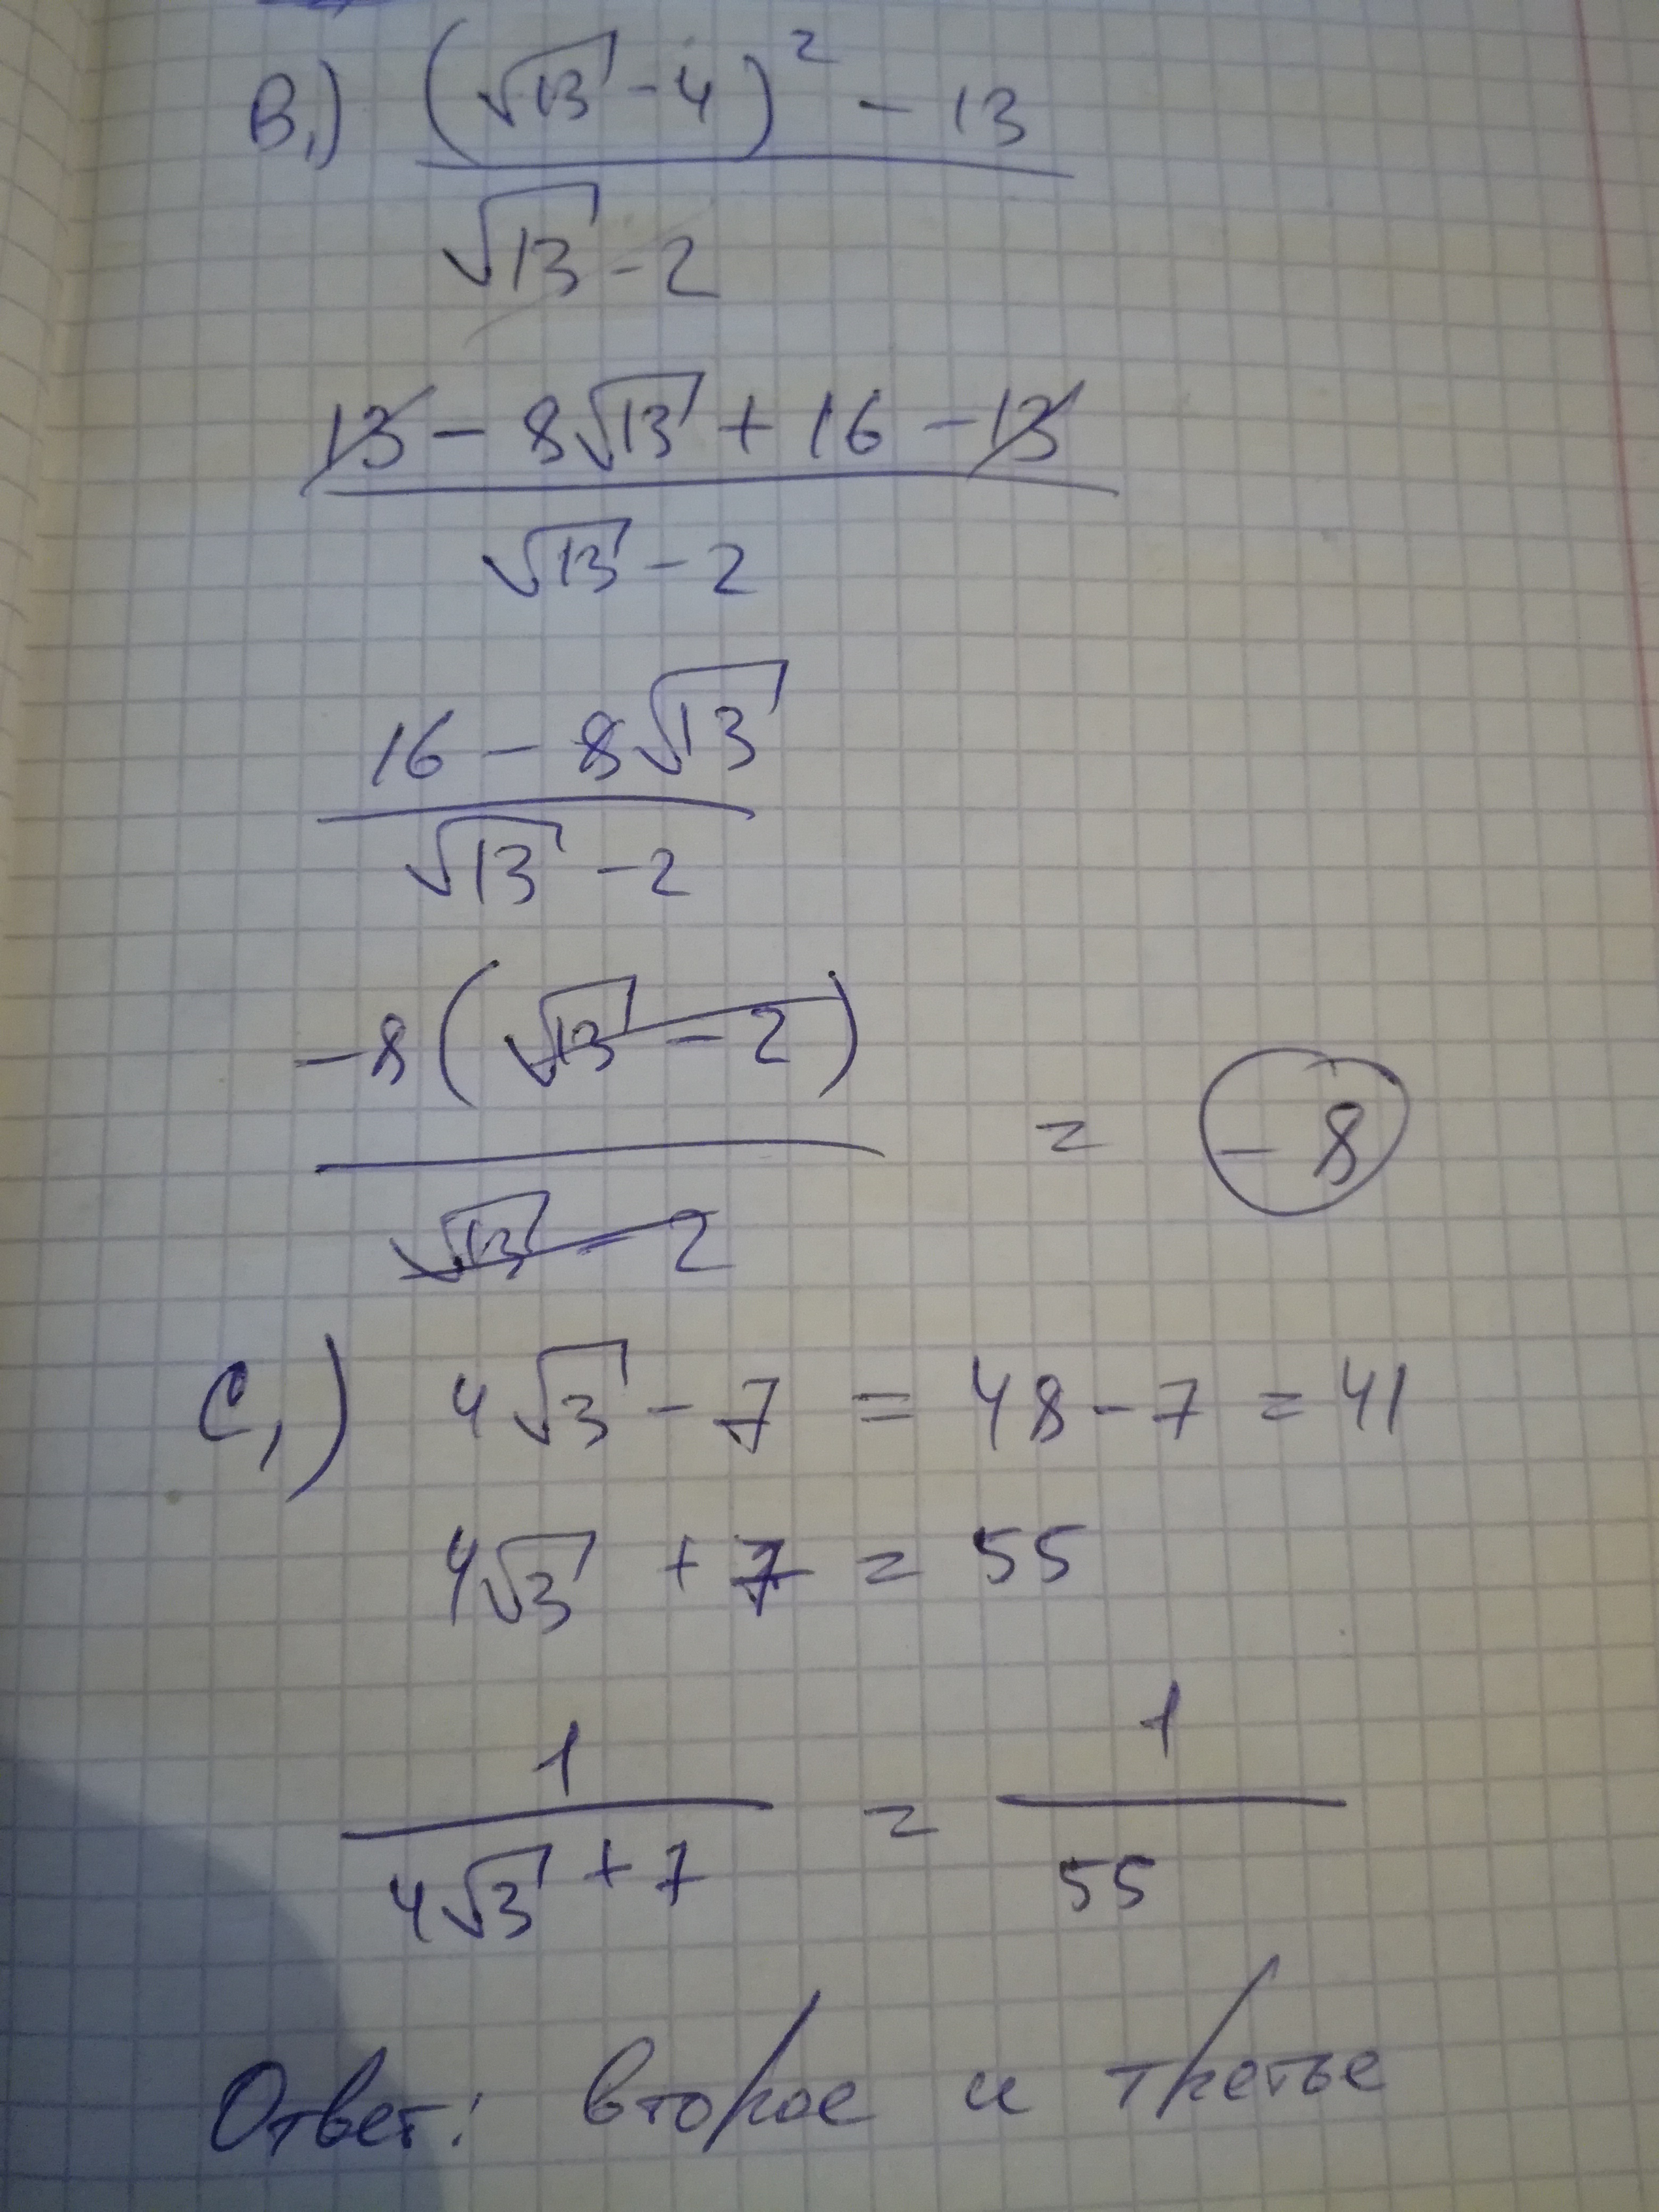 B,) (√13 - 4)² - 13
√13 - 2
13 - 8√13 + 16 - 13
√13 - 2
16 - 8√13
√13 - 2
-8(√13 - 2) = -8
√13 - 2
C,) 4√3 - 7 = 48 - 7 = 41
4√3 + 7 = 55
1 = 1
4√3 + 7 55
Ответ: второе и третье